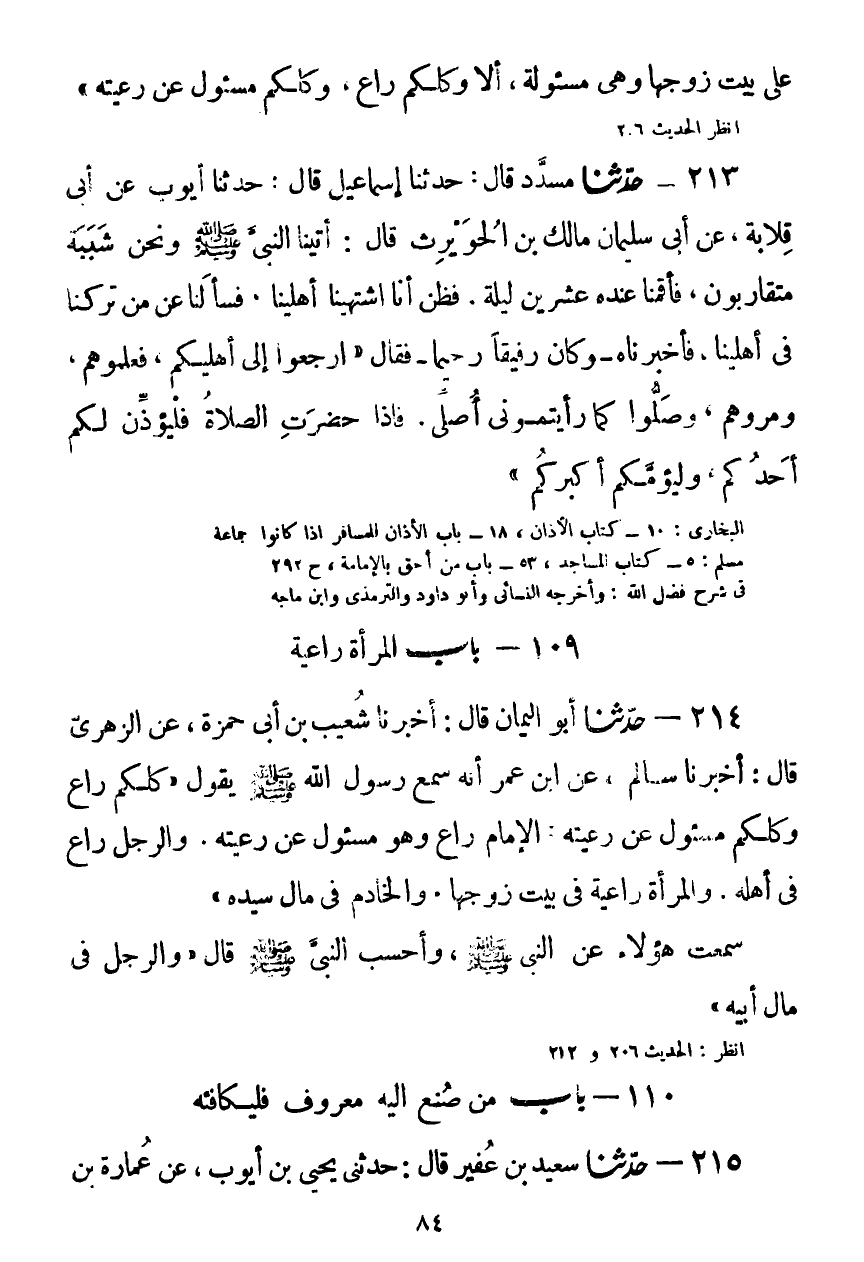 على بيت زوجها وهى مسئولة ، ألا وكلـكم راع ، وكلـكم مسئول عن رعيته »
انظر الحديث ٢٠٦
٢١٣ ــ حدّثنا مسدَّد قال : حدثنا إسماعيل قال : حدثنا أيوب عن أبى
قِلابة ، عن أبى سليمان مالك بن الحوَيْرِث قال : أتينا النبىَّ ﷺ ونحن شَبَبَة
متقاربون ، فأقمنا عنده عشرين ليلة . فظن أنا اشتهينا أهلينا . فسألَنا عن من تركنا
فى أهلينا . فأخبرناه ــ وكان رفيقاً رحيما ــ فقال « ارجعوا إلى أهليـكم ، فعلموهم ،
ومروهم ، وصَلُّوا كما رأيتمـونى أُصلِّى . فاذا حضرَتِ الصلاةُ فلْيؤذِّن لـكم
أحدُكم ، وليؤمَّـكم أكبركُم »
البخارى : ١٠ ــ كتاب الأذان ، ١٨ ــ باب الأذان للمسافر اذا كانوا جماعة
مسلم : ٥ ــ كتاب المساجد ، ٥٣ ــ باب من أحق بالإمامة ، ح ٢٩٢
فى شرح فضل الله : وأخرجه النسائى وأبو داود والترمذى وابن ماجه
١٠٩ — باب المرأة راعية
٢١٤ — حدّثنا أبو اليمان قال : أخبرنا شُعيب بن أبى حمزة ، عن الزهرىّ
قال : أخبرنا سـالم ، عن ابن عمر أنه سمع رسول الله ﷺ يقول « كلـكم راع
وكلـكم مسئول عن رعيته : الإمام راع وهو مسئول عن رعيته . والرجل راع
فى أهله . والمرأة راعية فى بيت زوجها . والخادم فى مال سيده »
سمعت هؤلاء عن النبى ﷺ ، وأحسب النبىَّ ﷺ قال « والرجل فى
مال أبيه »
انظر : الحديث ٢٠٦ و ٢١٢
١١٠ — باب من صُنع اليه معروف فليـكافئه
٢١٥ — حدّثنا سعيد بن عُفير قال : حدثنى يحيى بن أيوب ، عن عُمارة بن
٨٤